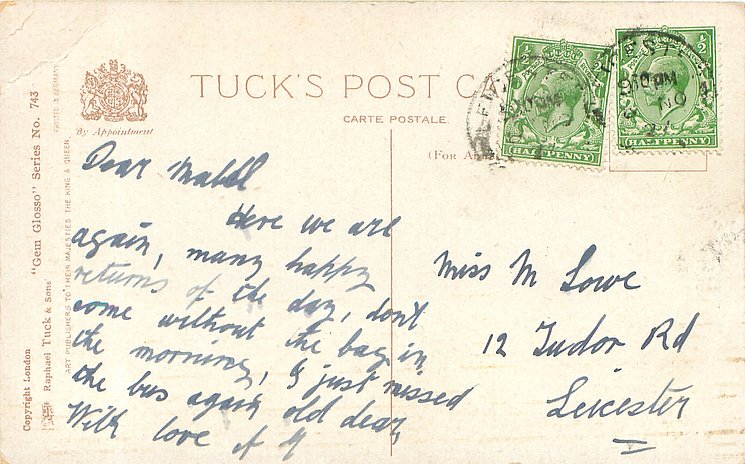 TUCK'S POST CA
CARTE POSTALE.
(For A
By Appointment
"Gem Glosso" Series No. 743
PRINTED IN GERMANY
ART PUBLISHERS TO THEIR MAJESTIES THE KING & QUEEN.
Raphael Tuck & Sons'
Copyright London
½ ½
HALFPENNY
½ ½
HALFPENNY
9 10 PM
NO
Dear Mabel
Here we are
again, many happy
returns of the day, don't
come without the bag in
the morning, I just missed
the bus again old dear,
With love
Miss M Lowe
12 Tudor Rd
Leicester